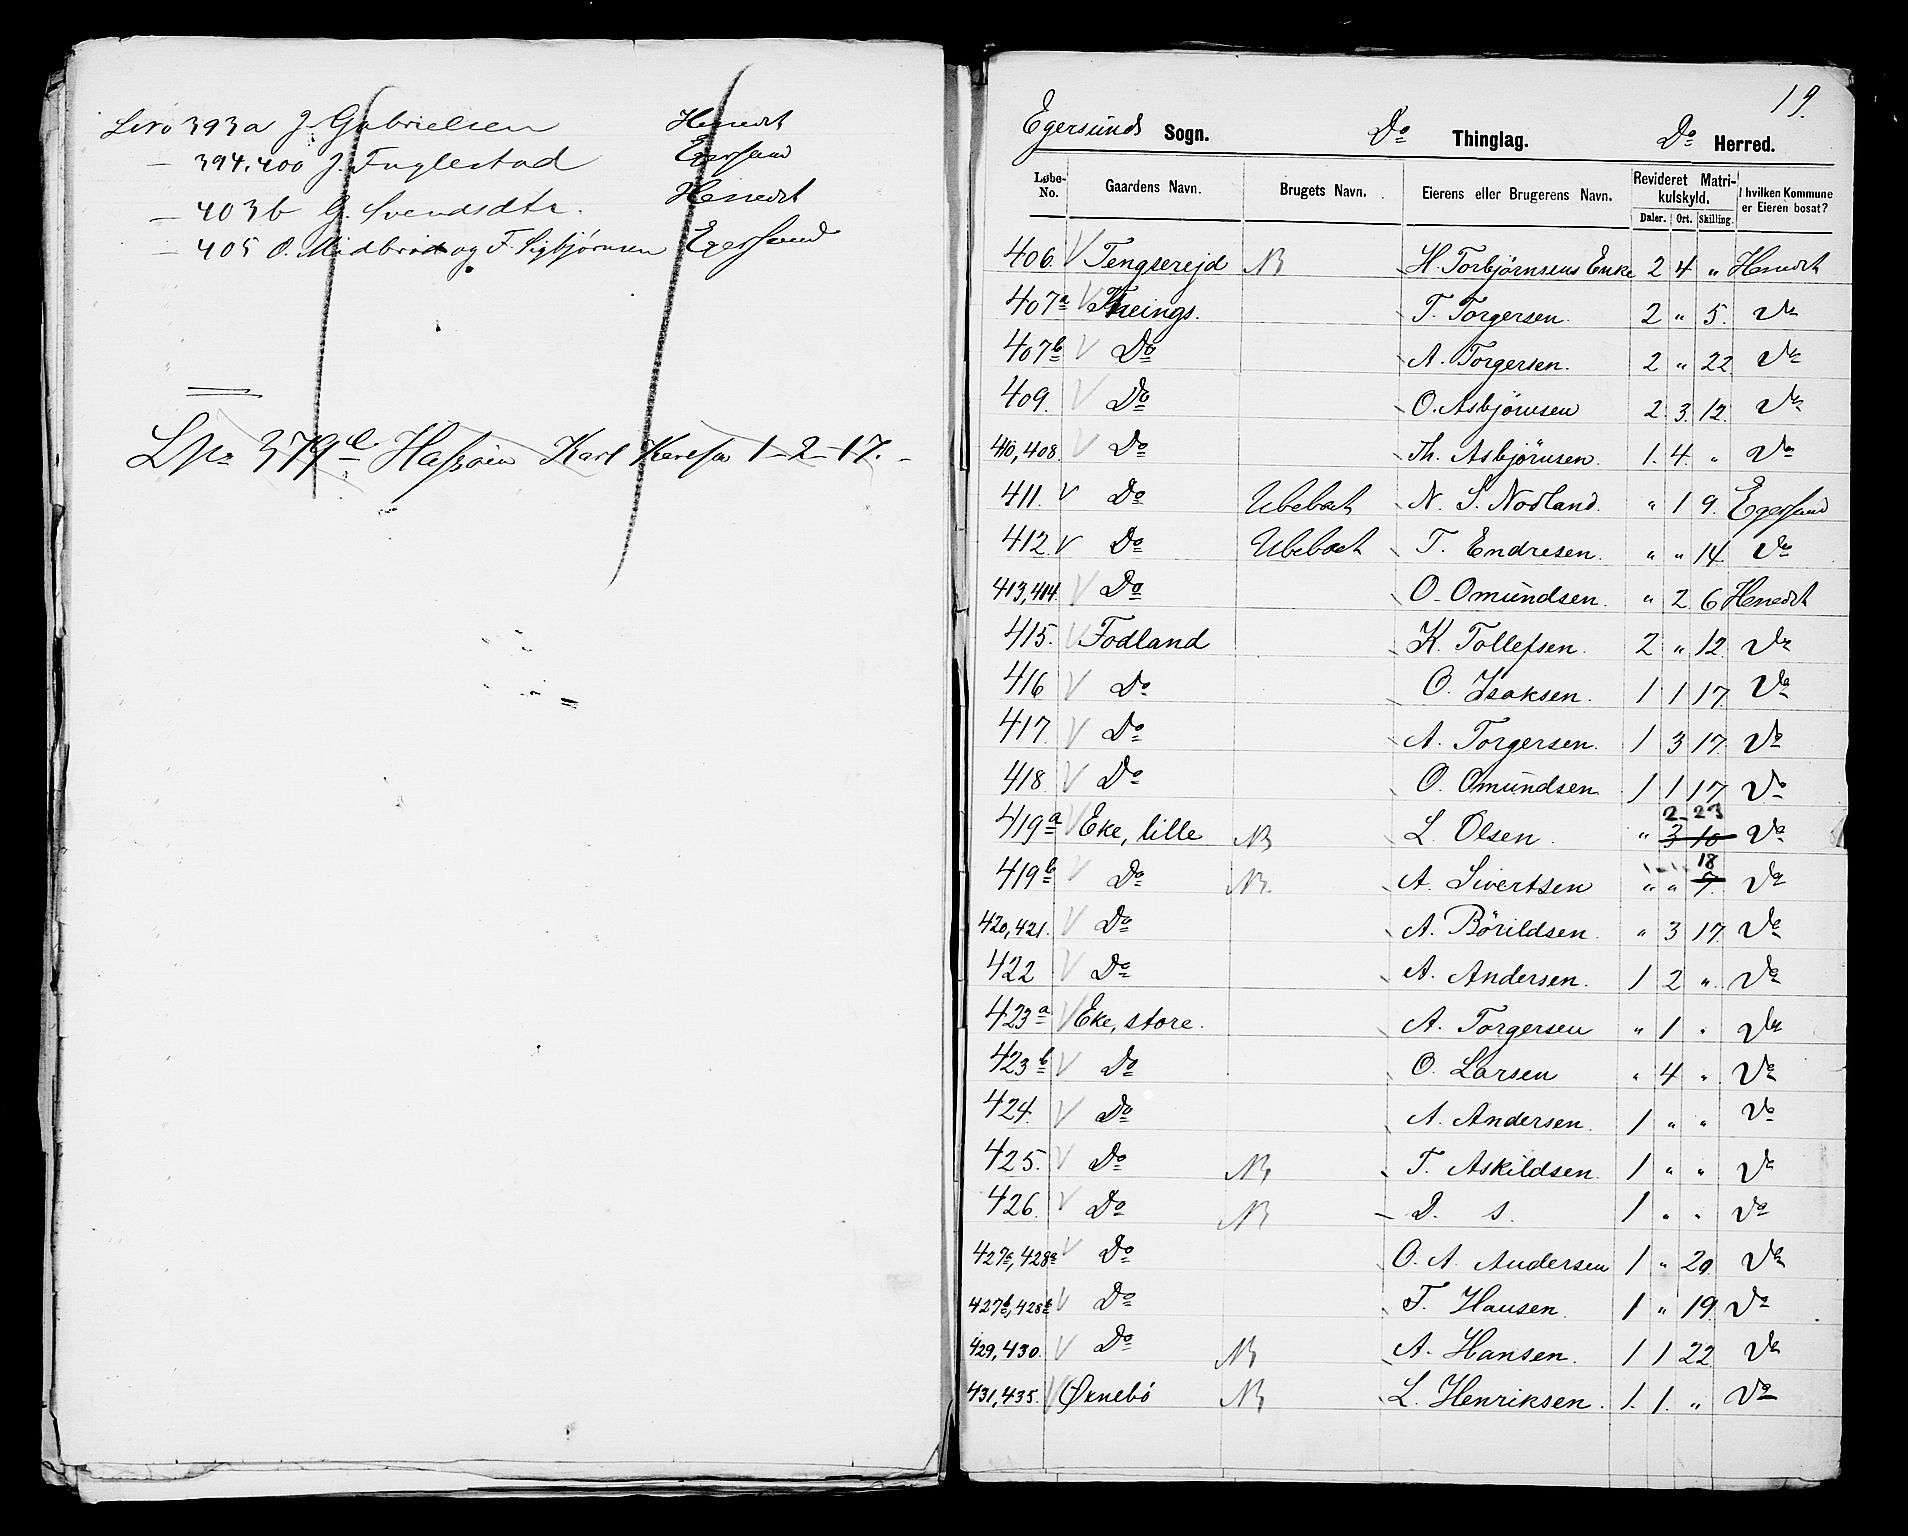 Lno 393a J. Gabrielsen Herredt
— 394.400 J. Fuglestad Egersund
— 403b G. Svendsdtr. Herredt
— 405 O. Midbrød og F. Sigbjørnsen Egersund
LNo 379e Hafsøien Karl Karlsen 1-2-17.
19.
Egersunds Sogn. Do Thinglag. Do Herred.
Løbe-No. Gaardens Navn. Brugets Navn. Eierens eller Brugerens Navn. Revideret Matrikulskyld. Daler. Ort. Skilling. I hvilken Kommune er Eieren bosat?
406. V Tengsereid NB H. Torbjørnsens Enke 2 4 " Herredt
407a V Theings. T. Torgersen. 2 " 5. Do
407b V Do A. Torgersen. 2 " 22 Do
409. V Do O. Asbjørnsen 2. 3. 12. Do
410, 408. V Do Th. Asbjørnsen. 1. 4. " Do
411. V Do Ubeboet N. S. Nodland. " 1 9. Egersund
412 V Do Ubeboet T. Endresen. " " 14 Do
413, 414. V Do O. Omundsen. " 2 6 Herredt
415. V Fodland K. Tollefsen. 2 " 12. Do
416 V Do O. Isaksen. 1 1 17. Do
417. V Do A. Torgersen. 1 3 17. Do
418 V Do O. Omundsen 1 1 17. Do
2 23
419a V Eke, lille NB L. Olsen. " 3 10 Do
18
419b V Do NB. A. Sivertsen " " 7. Do
420, 421. V Do A. Börildsen. " 3 17. Do
422 V Do A. Andersen. 1 2 " Do
423a V Eke, store. A. Torgersen " 1 " Do
423b V Do O. Larsen " 4 " Do
424. V Do A. Andersen. 1 " " Do
425. V Do NB T. Askildsen. 1 " " Do
426. V Do NB D. s. 1 " " Do
427a, 428a V Do O. A. Andersen 1 " 20. Do
427b, 428b V Do T. Hansen. 1 " 19. Do
429, 430. V Do NB A. Hansen. 1 1 22 Do
431, 435. V Ørnebö NB L. Henriksen. 1. 1. " Do